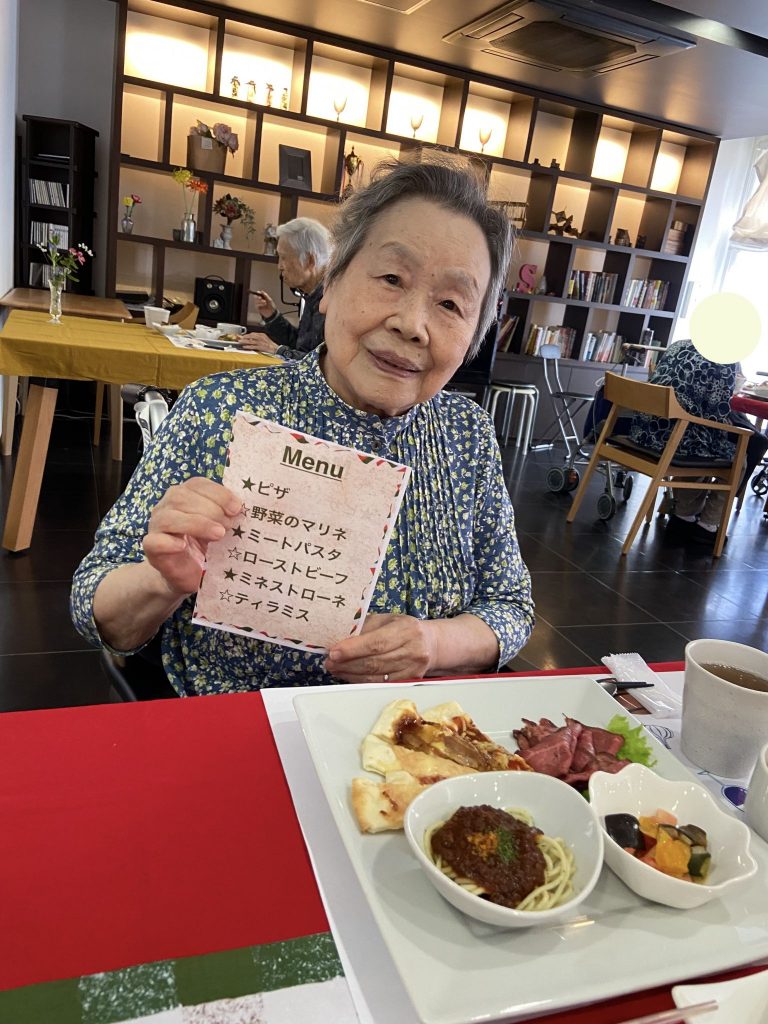 Menu
★ピザ
☆野菜のマリネ
★ミートパスタ
☆ローストビーフ
★ミネストローネ
☆ティラミス